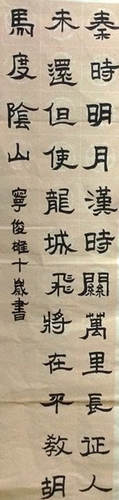 秦時明月漢時關萬里長征人
未還但使龍城飛將在平教胡
馬度陰山
寧俊雄十歲書